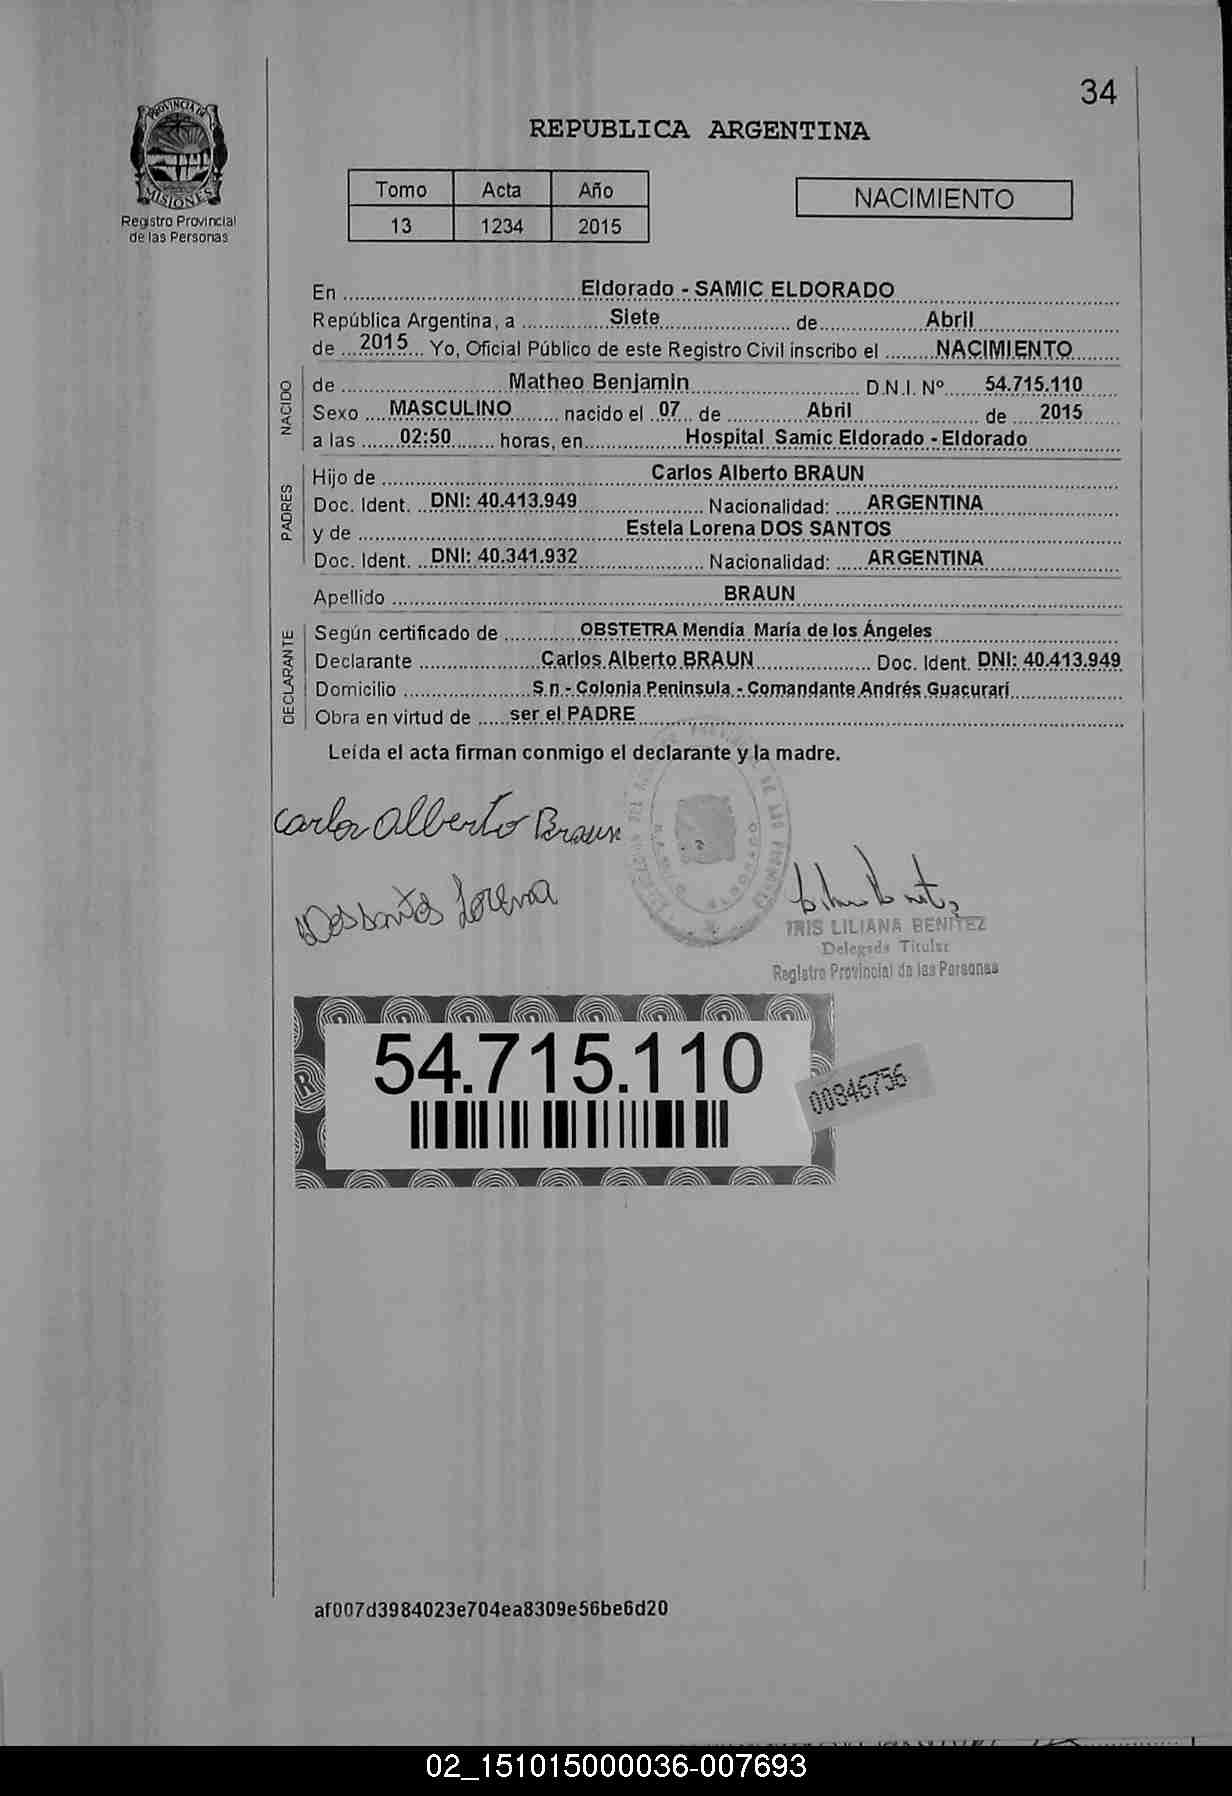 34
PROVINCIA DE
MISIONES
Registro Provincial
de las Personas
REPUBLICA ARGENTINA
Tomo Acta Año
13 1234 2015
NACIMIENTO
En Eldorado - SAMIC ELDORADO
República Argentina, a Siete de Abril
de 2015 Yo, Oficial Público de este Registro Civil inscribo el NACIMIENTO
NACIDO
de Matheo Benjamin D.N.I. Nº 54.715.110
Sexo MASCULINO nacido el 07 de Abril de 2015
a las 02:50 horas, en Hospital Samic Eldorado - Eldorado
PADRES
Hijo de Carlos Alberto BRAUN
Doc. Ident. DNI: 40.413.949 Nacionalidad: ARGENTINA
y de Estela Lorena DOS SANTOS
Doc. Ident. DNI: 40.341.932 Nacionalidad: ARGENTINA
Apellido BRAUN
DECLARANTE
Según certificado de OBSTETRA Mendía María de los Ángeles
Declarante Carlos Alberto BRAUN Doc. Ident. DNI: 40.413.949
Domicilio S.n - Colonia Peninsula - Comandante Andrés Guacurarí
Obra en virtud de ser el PADRE
Leída el acta firman conmigo el declarante y la madre.
Carlos Alberto Braun
Dossantos Lorena
IRIS LILIANA BENITEZ
Delegada Titular
Registro Provincial de las Personas
54.715.110
00846756
af007d3984023e704ea8309e56be6d20
02_151015000036-007693